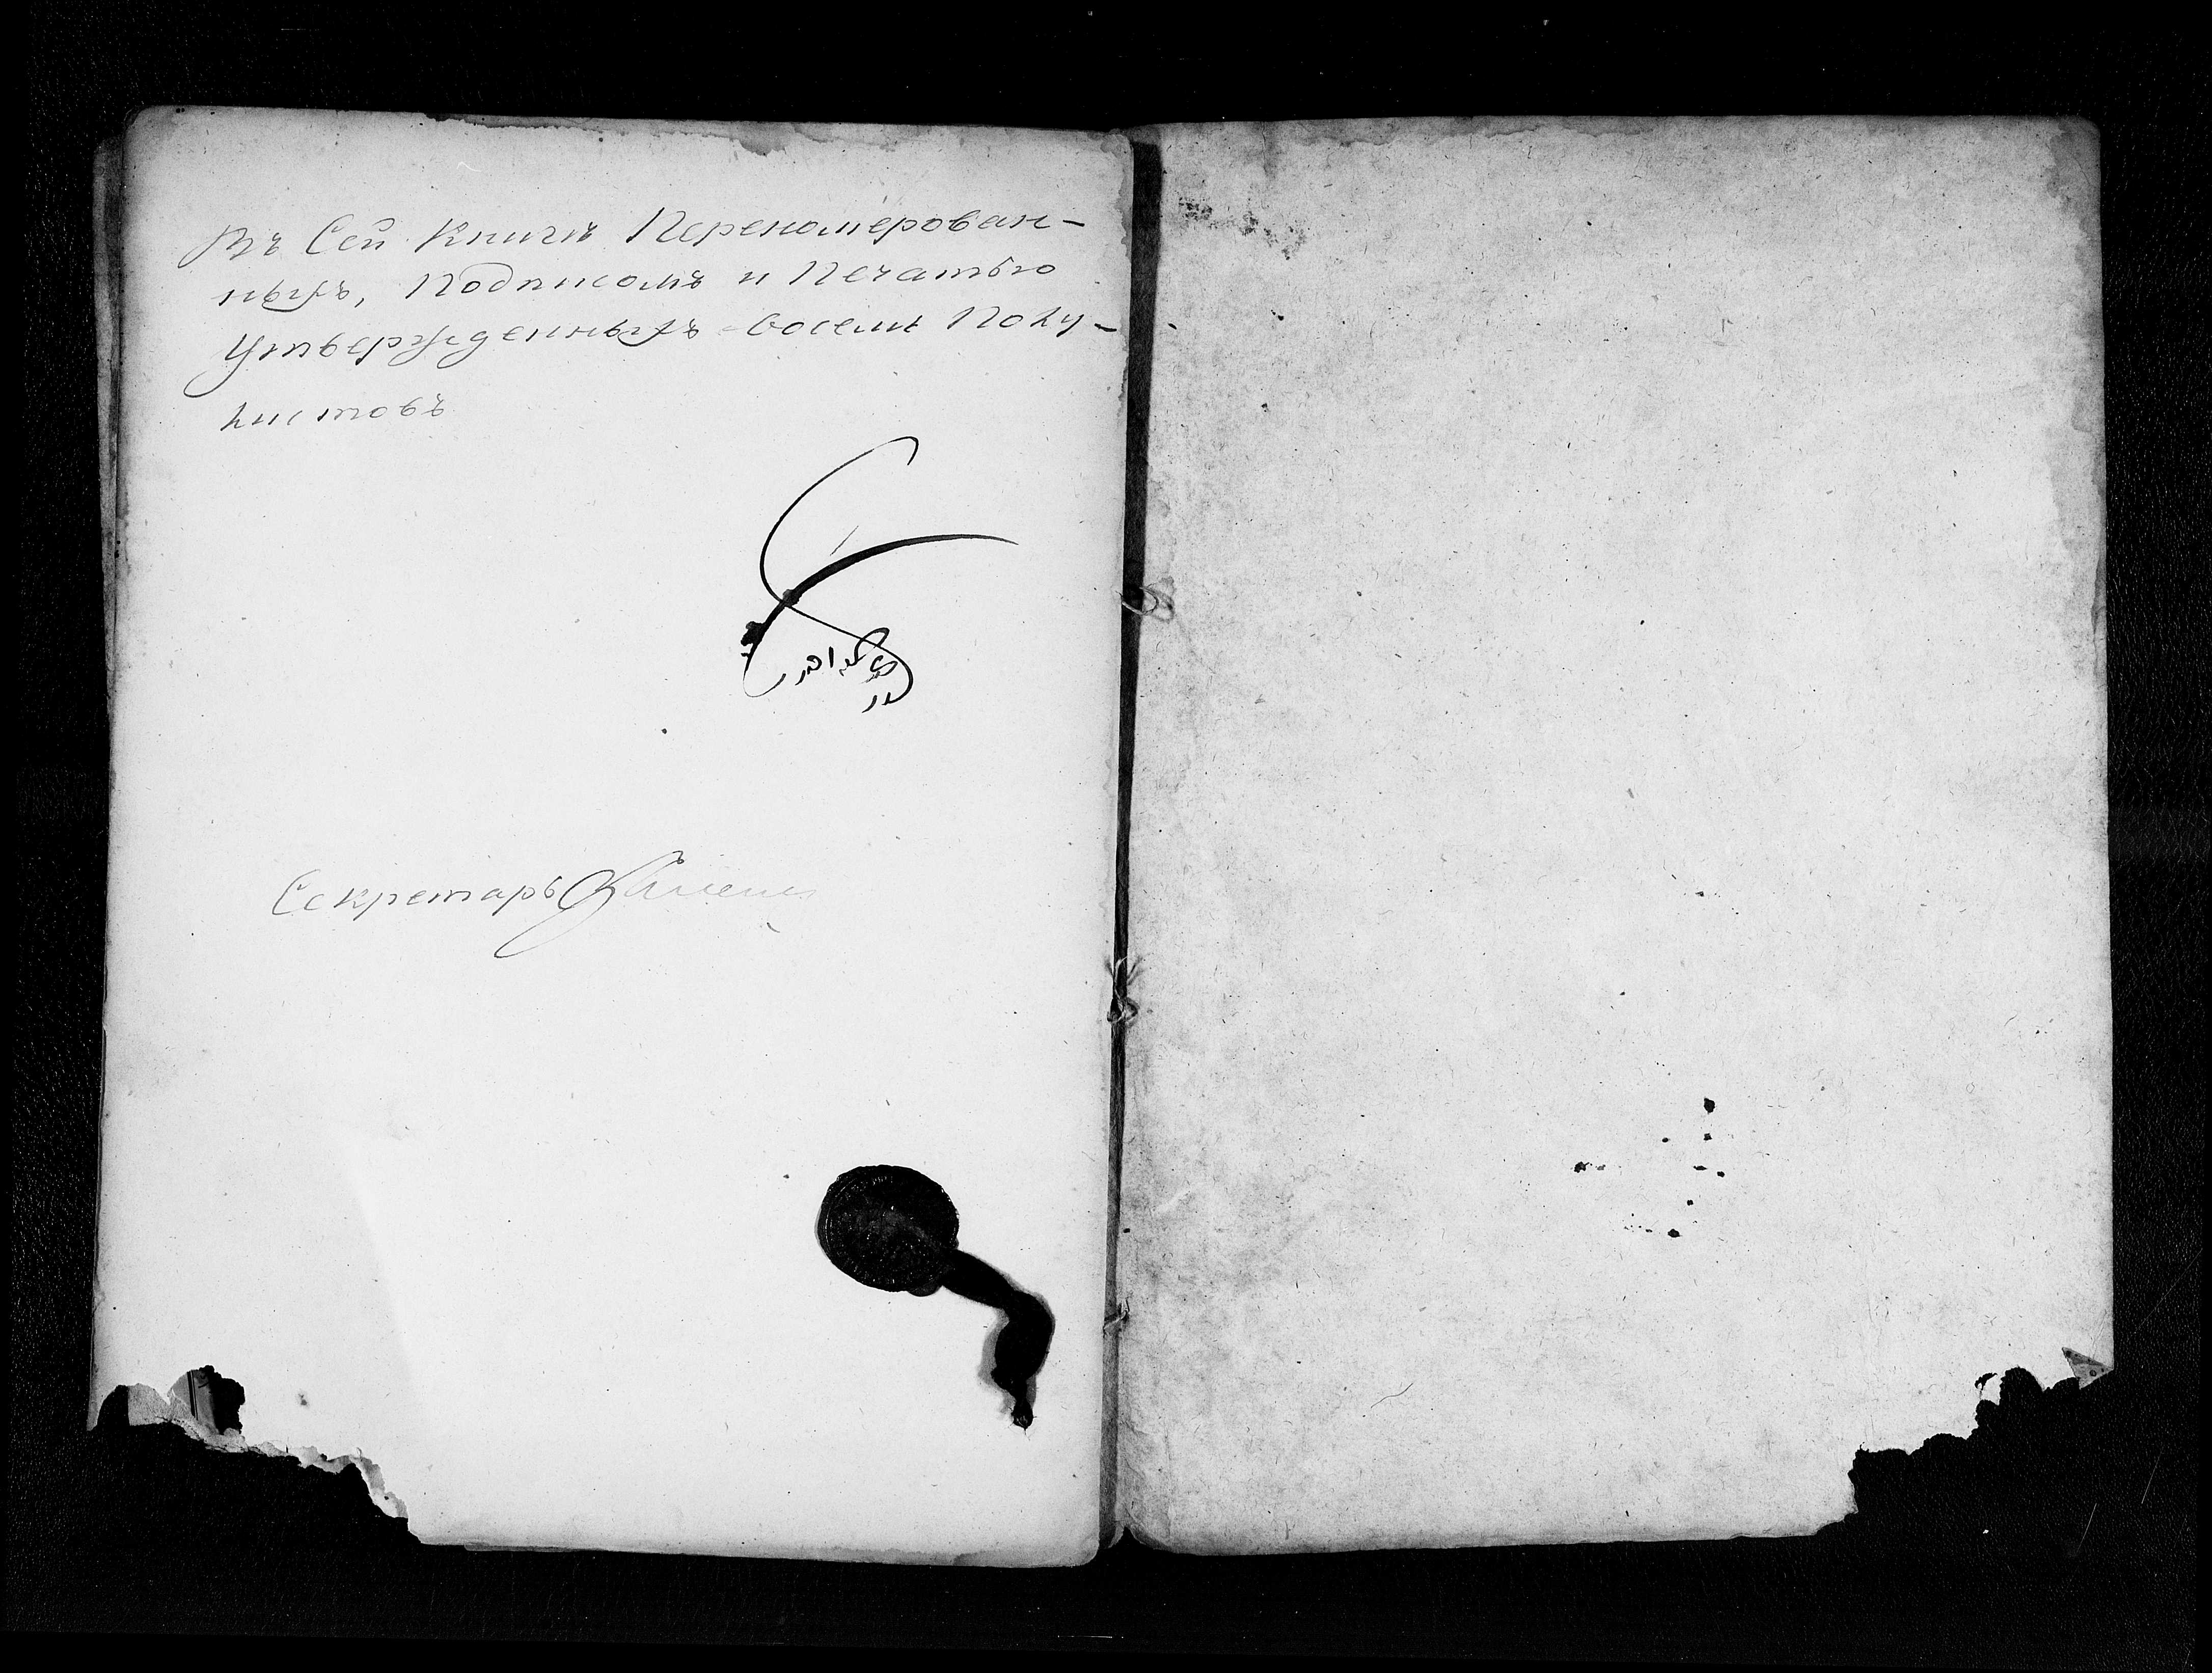 Въ Сей Книги Переномерован-
ныхъ, Подписомъ и Печатью
Утвержденныхъ восеми Полу-
листовъ
Секретарь